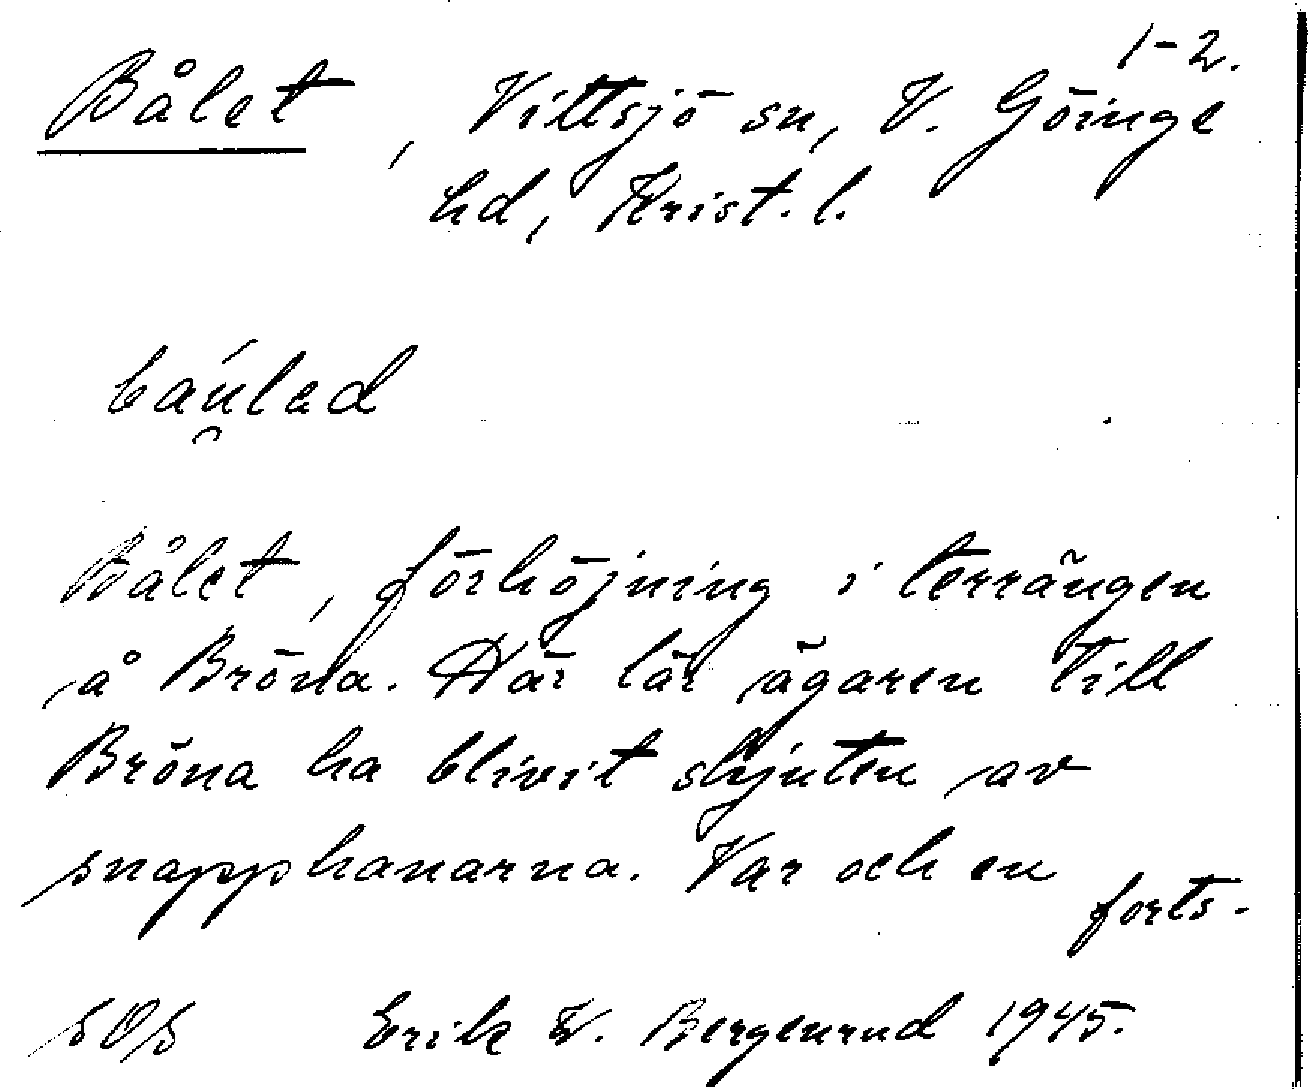 1-2.
Bålet, Vittsjö sn, V. Göinge
hd, Krist. l.
báu̯lad
Bålet, förhöjning i terrängen
å Bröna. Här lär ägaren till
Bröna ha blivit skjuten av
snapphanarna. Var och en
forts.
SOS Erik W. Bergenrud 1945.